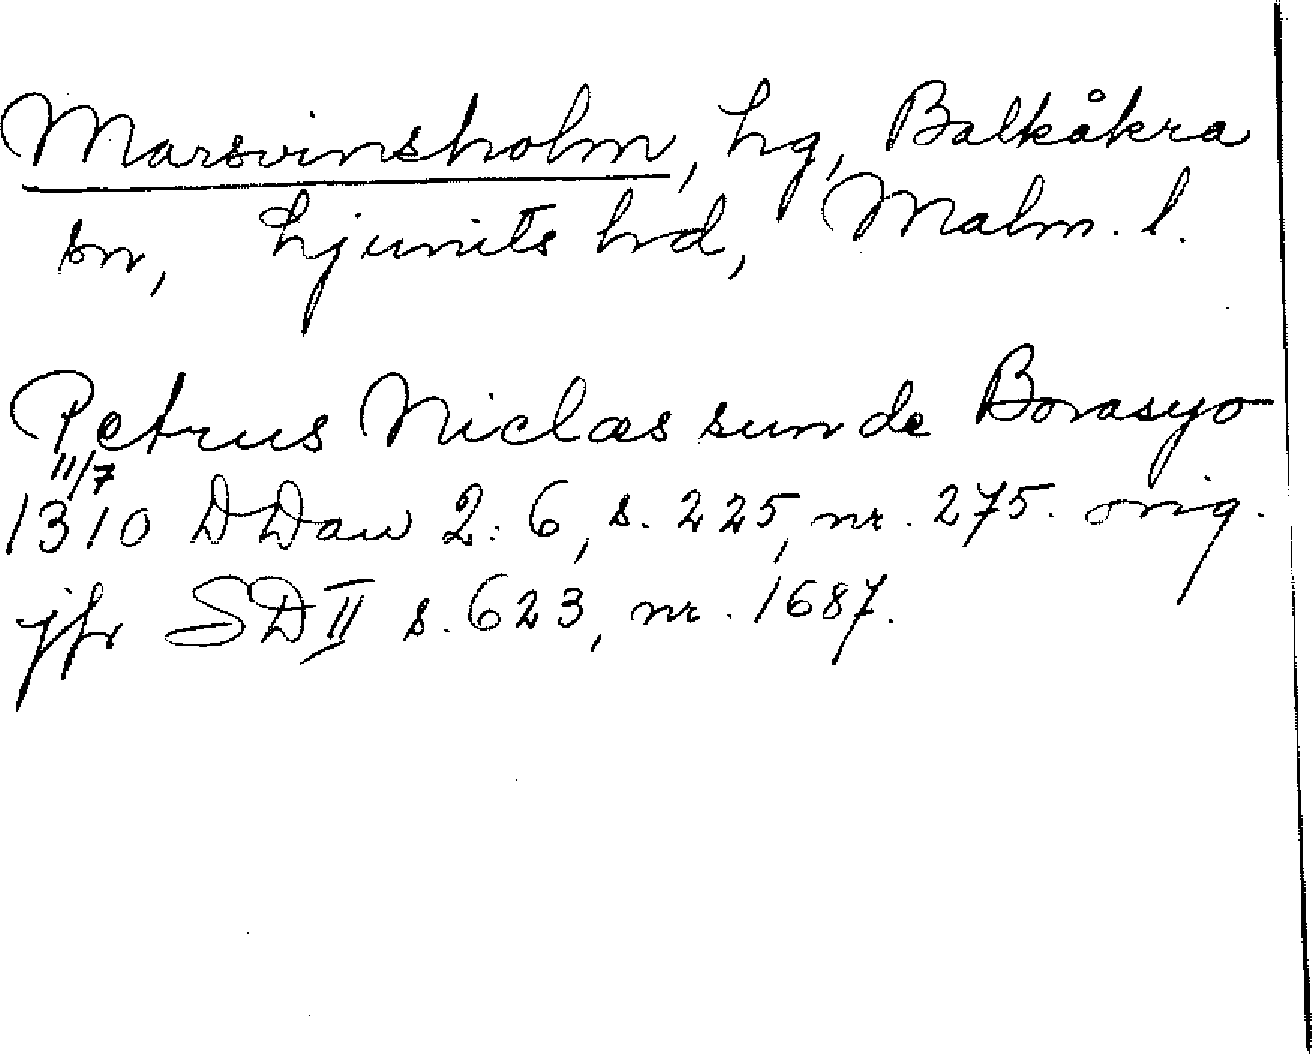 Marsvinsholm, hg, Balkåkra
sn, Ljunits hd, Malm. l.
Petrus Niclas sun de Borasyo
11/7
1310 DDan 2:6, s. 225, nr. 275. orig.
jfr SD II s. 623, nr. 1687.